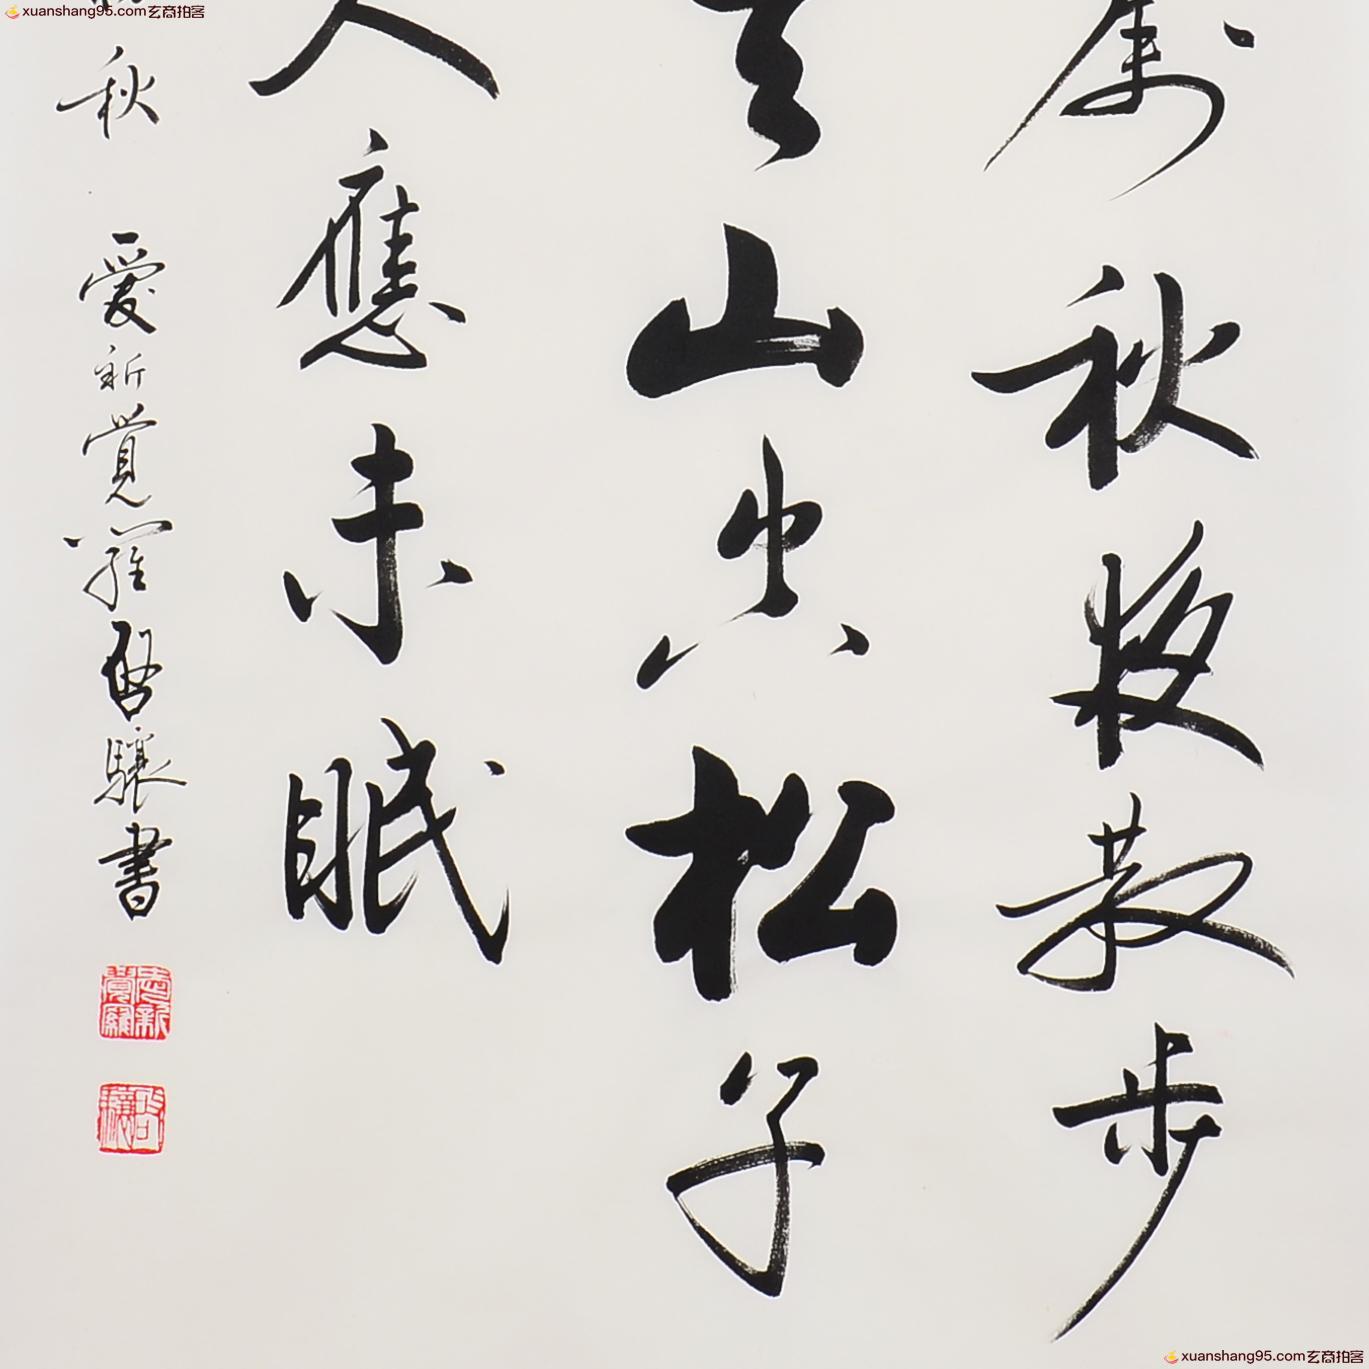 xuanshang95.com玄商拍客
屬秋夜散步
天山空松子
人應未眠
秋 愛新覺羅啓驤書
愛新覺羅
啓驤
xuanshang95.com玄商拍客